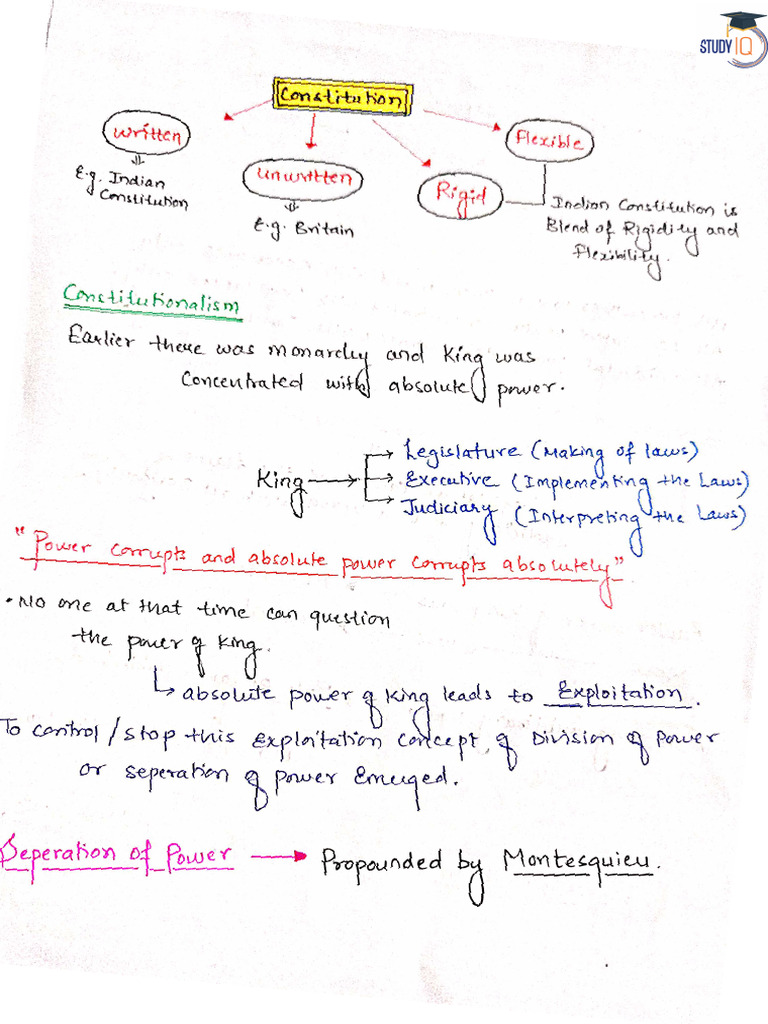 STUDY IQ
Constitution
Written
Unwritten
Rigid
Flexible
E.g. Indian
Constitution
E.g. Britain
Indian Constitution is
Blend of Rigidity and
Flexibility.
Constitutionalism
Earlier there was monarchy and King was
Concentrated with absolute power.
King
Legislature (Making of laws)
Executive (Implementing the Laws)
Judiciary (Interpreting the Laws)
"Power corrupts and absolute power corrupts absolutely"
• No one at that time can question
the power of King.
absolute power of King leads to Exploitation.
To control/stop this Exploitation concept of Division of Power
or seperation of power Emerged.
Seperation of Power → Propounded by Montesquieu.